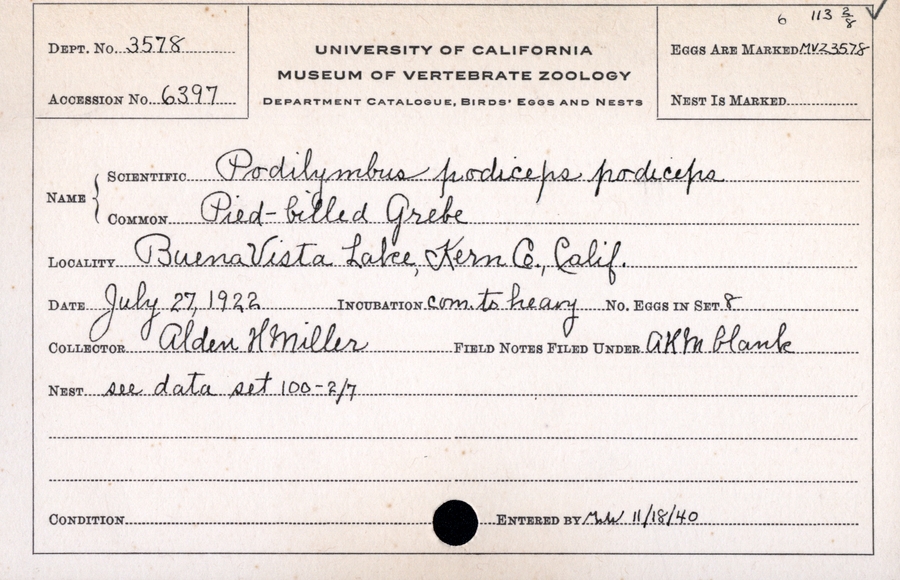 6 113 2/8
Dept. No. 3578
UNIVERSITY OF CALIFORNIA
Eggs Are Marked MVZ 3578
MUSEUM OF VERTEBRATE ZOOLOGY
Accession No. 6397
Department Catalogue, Birds' Eggs and Nests
Nest Is Marked
Name
Scientific Podilymbus podiceps podiceps
Common Pied-billed Grebe
Locality Buena Vista Lake, Kern Co., Calif.
Date July 27, 1922 Incubation com. to heavy No. Eggs in Set 8
Collector Alden H Miller Field Notes Filed Under blank
Nest see data set 100-2/7
Condition Entered by 11/18/40